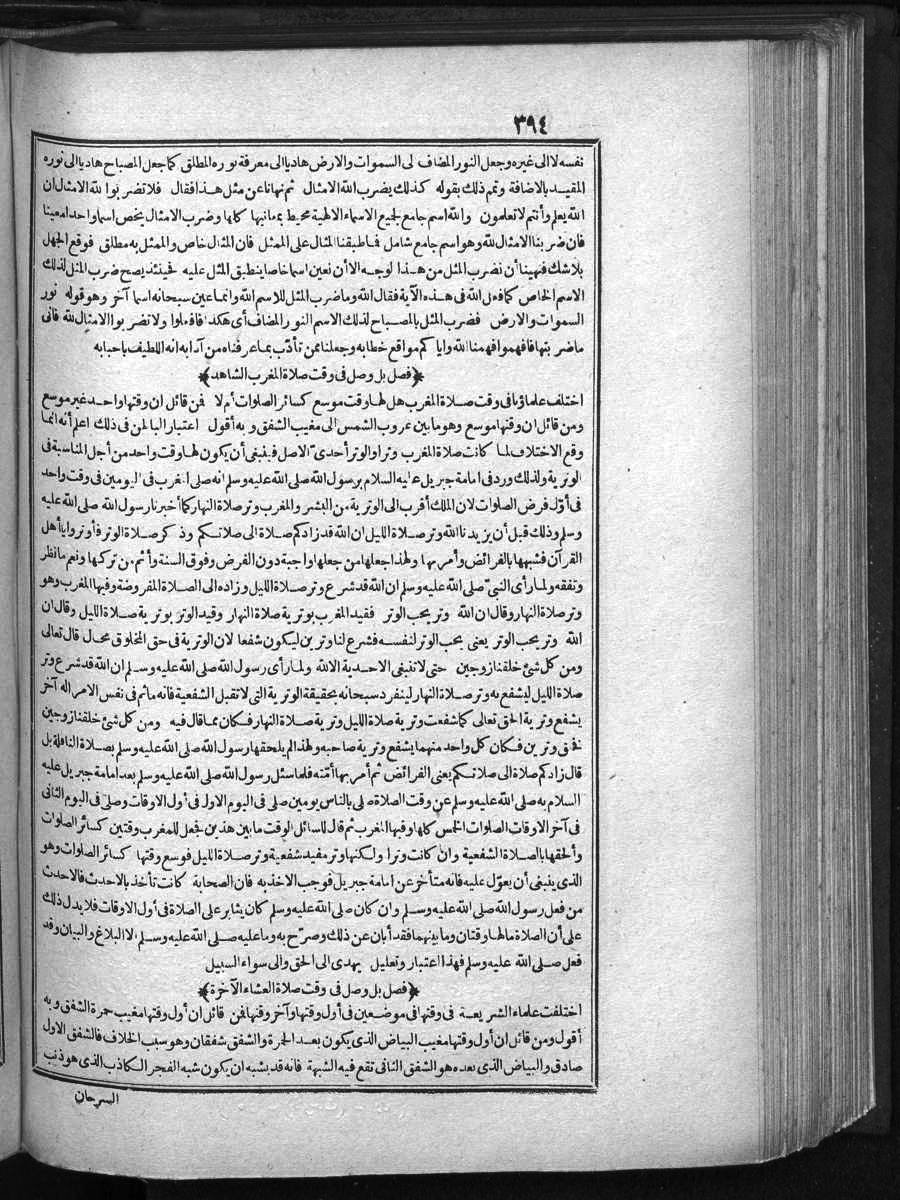 ٣٩٤
نفسه لا الى غيره وجعل النور المضاف لى السموات والارض هاديا الى معرفة نوره المطلق كما جعل المصباح هاديا الى نوره
المقيد بالاضافة وتمم ذلك بقوله كذلك يضرب الله الامثال ثم نهانا عن مثل هذا فقال فلا تضربوا لله الامثال ان
الله يعلم وأنتم لا تعلمون والله اسم جامع لجميع الاسماء الالهية محيط بمعانيها كلها وضرب الامثال يخص اسما واحدا معينا
فان ضربنا الامثال لله وهو اسم جامع شامل فما طبقنا المثال على الممثل فان المثال خاص والممثل به مطلق فوقع الجهل
بلا شك فنهينا أن نضرب المثل من هذا لوجه الا أن نعين اسما خاصا ينطبق المثل عليه فحينئذ يصح ضرب المثل لذلك
الاسم الخاص كما فعل الله فى هذه الآية فقال الله وما ضرب المثل للاسم الله وانما عين سبحانه اسما آخر وهو قوله نور
السموات والارض فضرب المثل بالمصباح لذلك الاسم النور المضاف أى هكذا فافعلوا ولا تضربوا الامثال لله فانى
ما ضربتها فافهموا فهمنا الله واياكم مواقع خطابه وجعلنا ممن تأدّب بما عرفناه من آدابه انه اللطيف باحبابه
﴿فصل بل وصل فى وقت صلاة المغرب الشاهد﴾
اختلف علماؤنا فى وقت صلاة المغرب هل لها وقت موسع كسائر الصلوات أم لا فمن قائل ان وقتها واحد غير موسع
ومن قائل ان وقتها موسع وهو ما بين غروب الشمس الى مغيب الشفق وبه أقول اعتبار الباطن فى ذلك اعلم أنه انما
وقع الاختلاف لما كانت صلاة المغرب وترا والوتر أحدىّ الاصل فينبغى أن يكون لها وقت واحد من أجل المناسبة فى
الوترية ولذلك ورد فى امامة جبريل عليه السلام برسول الله صلى الله عليه وسلم انه صلى المغرب فى اليومين فى وقت واحد
فى أوّل فرض الصلوات لان الملك أقرب الى الوترية من البشر والمغرب وتر صلاة النهار كما أخبرنا رسول الله صلى الله عليه
وسلم وذلك قبل أن يزيدنا الله وتر صلاة الليل ان الله قد زادكم صلاة الى صلاتكم وذكر صلاة الوتر فأوتروا يا أهل
القرآن فشبهها بالفرائض وأمر بها ولهذا جعلها من جعلها واجبة دون الفرض وفوق السنة وأثم من تركها ونعم ما نظر
وتفقه ولما رأى النبىّ صلى الله عليه وسلم ان الله قد شرع وتر صلاة الليل وزاده الى الصلاة المفروضة وفيها المغرب وهو
وتر صلاة النهار وقال ان الله وتر يحب الوتر فقيد المغرب بوترية صلاة النهار وقيد الوتر بوترية صلاة الليل وقال ان
الله وتر يحب الوتر يعنى يحب الوتر لنفسه فشرع لنا وترين ليكون شفعا لان الوترية فى حق المخلوق محال قال تعالى
ومن كل شئ خلقنا زوجين حتى لا تنبغى الاحدية الا لله ولما رأى رسول الله صلى الله عليه وسلم ان الله قد شرع وتر
صلاة الليل ليشفع به وتر صلاة النهار لينفرد سبحانه بحقيقة الوترية التى لا تقبل الشفعية فانه ما ثم فى نفس الامر اله آخر
يشفع وترية الحق تعالى كما شفعت وترية صلاة الليل وترية صلاة النهار فكان مما قال فيه ومن كل شئ خلقنا زوجين
نخلق وترين فكان كل واحد منهما يشفع وترية صاحبه ولهذا لم يلحقها رسول الله صلى الله عليه وسلم بصلاة النافلة بل
قال زادكم صلاة الى صلاتكم يعنى الفرائض ثم أمر بها أمّته فلما سئل رسول الله صلى الله عليه وسلم بعد امامة جبريل عليه
السلام به صلى الله عليه وسلم عن وقت الصلاة صلى بالناس يومين صلى فى اليوم الاول فى أول الاوقات وصلى فى اليوم الثانى
فى آخر الاوقات الصلوات الخمس كلها وفيها المغرب ثم قال للسائل الوقت ما بين هذين فجعل للمغرب وقتين كسائر الصلوات
وألحقها بالصلاة الشفعية وان كانت وترا ولكنها وتر مفيد شفعية وتر صلاة الليل فوسع وقتها كسائر الصلوات وهو
الذى ينبغى أن يعوّل عليه فانه متأخر عن امامة جبريل فوجب الاخذ به فان الصحابة كانت تأخذ بالاحدث فالاحدث
من فعل رسول الله صلى الله عليه وسلم وان كان صلى الله عليه وسلم كان يثابر على الصلاة فى أول الاوقات فلا يدل ذلك
على أن الصلاة ما لها وقتان وما بينهما فقد أبان عن ذلك وصرّح به وما عليه صلى الله عليه وسلم الا البلاغ والبيان وقد
فعل صلى الله عليه وسلم فهذا اعتبار وتعليل يهدى الى الحق والى سواء السبيل
﴿فصل بل وصل فى وقت صلاة العشاء الآخرة﴾
اختلفت علماء الشريعة فى وقتها فى موضعين فى أول وقتها وآخر وقتها فمن قائل ان أول وقتها مغيب حمرة الشفق وبه
أقول ومن قائل ان أول وقتها مغيب البياض الذى يكون بعد الحمرة والشفق شفقان وهو سبب الخلاف فالشفق الاول
صادق والبياض الذى بعده هو الشفق الثانى تقع فيه الشبهة فانه قد يشبه ان يكون شبه الفجر الكاذب الذى هو ذنب
السرحان